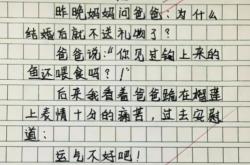 昨晚妈妈问爸爸：为什么
结婚后就不送礼物了？
爸爸说：“你见过钩上来的
鱼还喂食吗？！”
后来我看着爸爸跪在榴莲
上表情十分的痛苦，过去安慰
道：
运气不好吧！